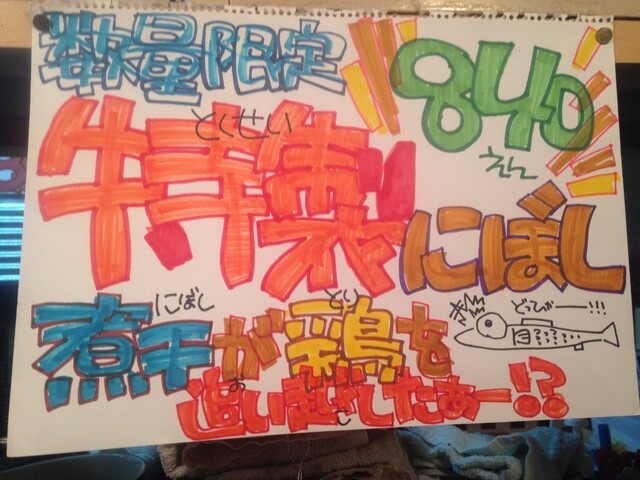 数量限定
840
えん
とくせい
特製 にぼし
にぼし とり
煮干が鶏を
どっぴゅーー!!!
お こ
追い越したぁー!?